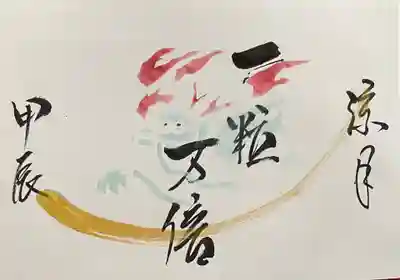 涼月
一粒
万倍
甲辰